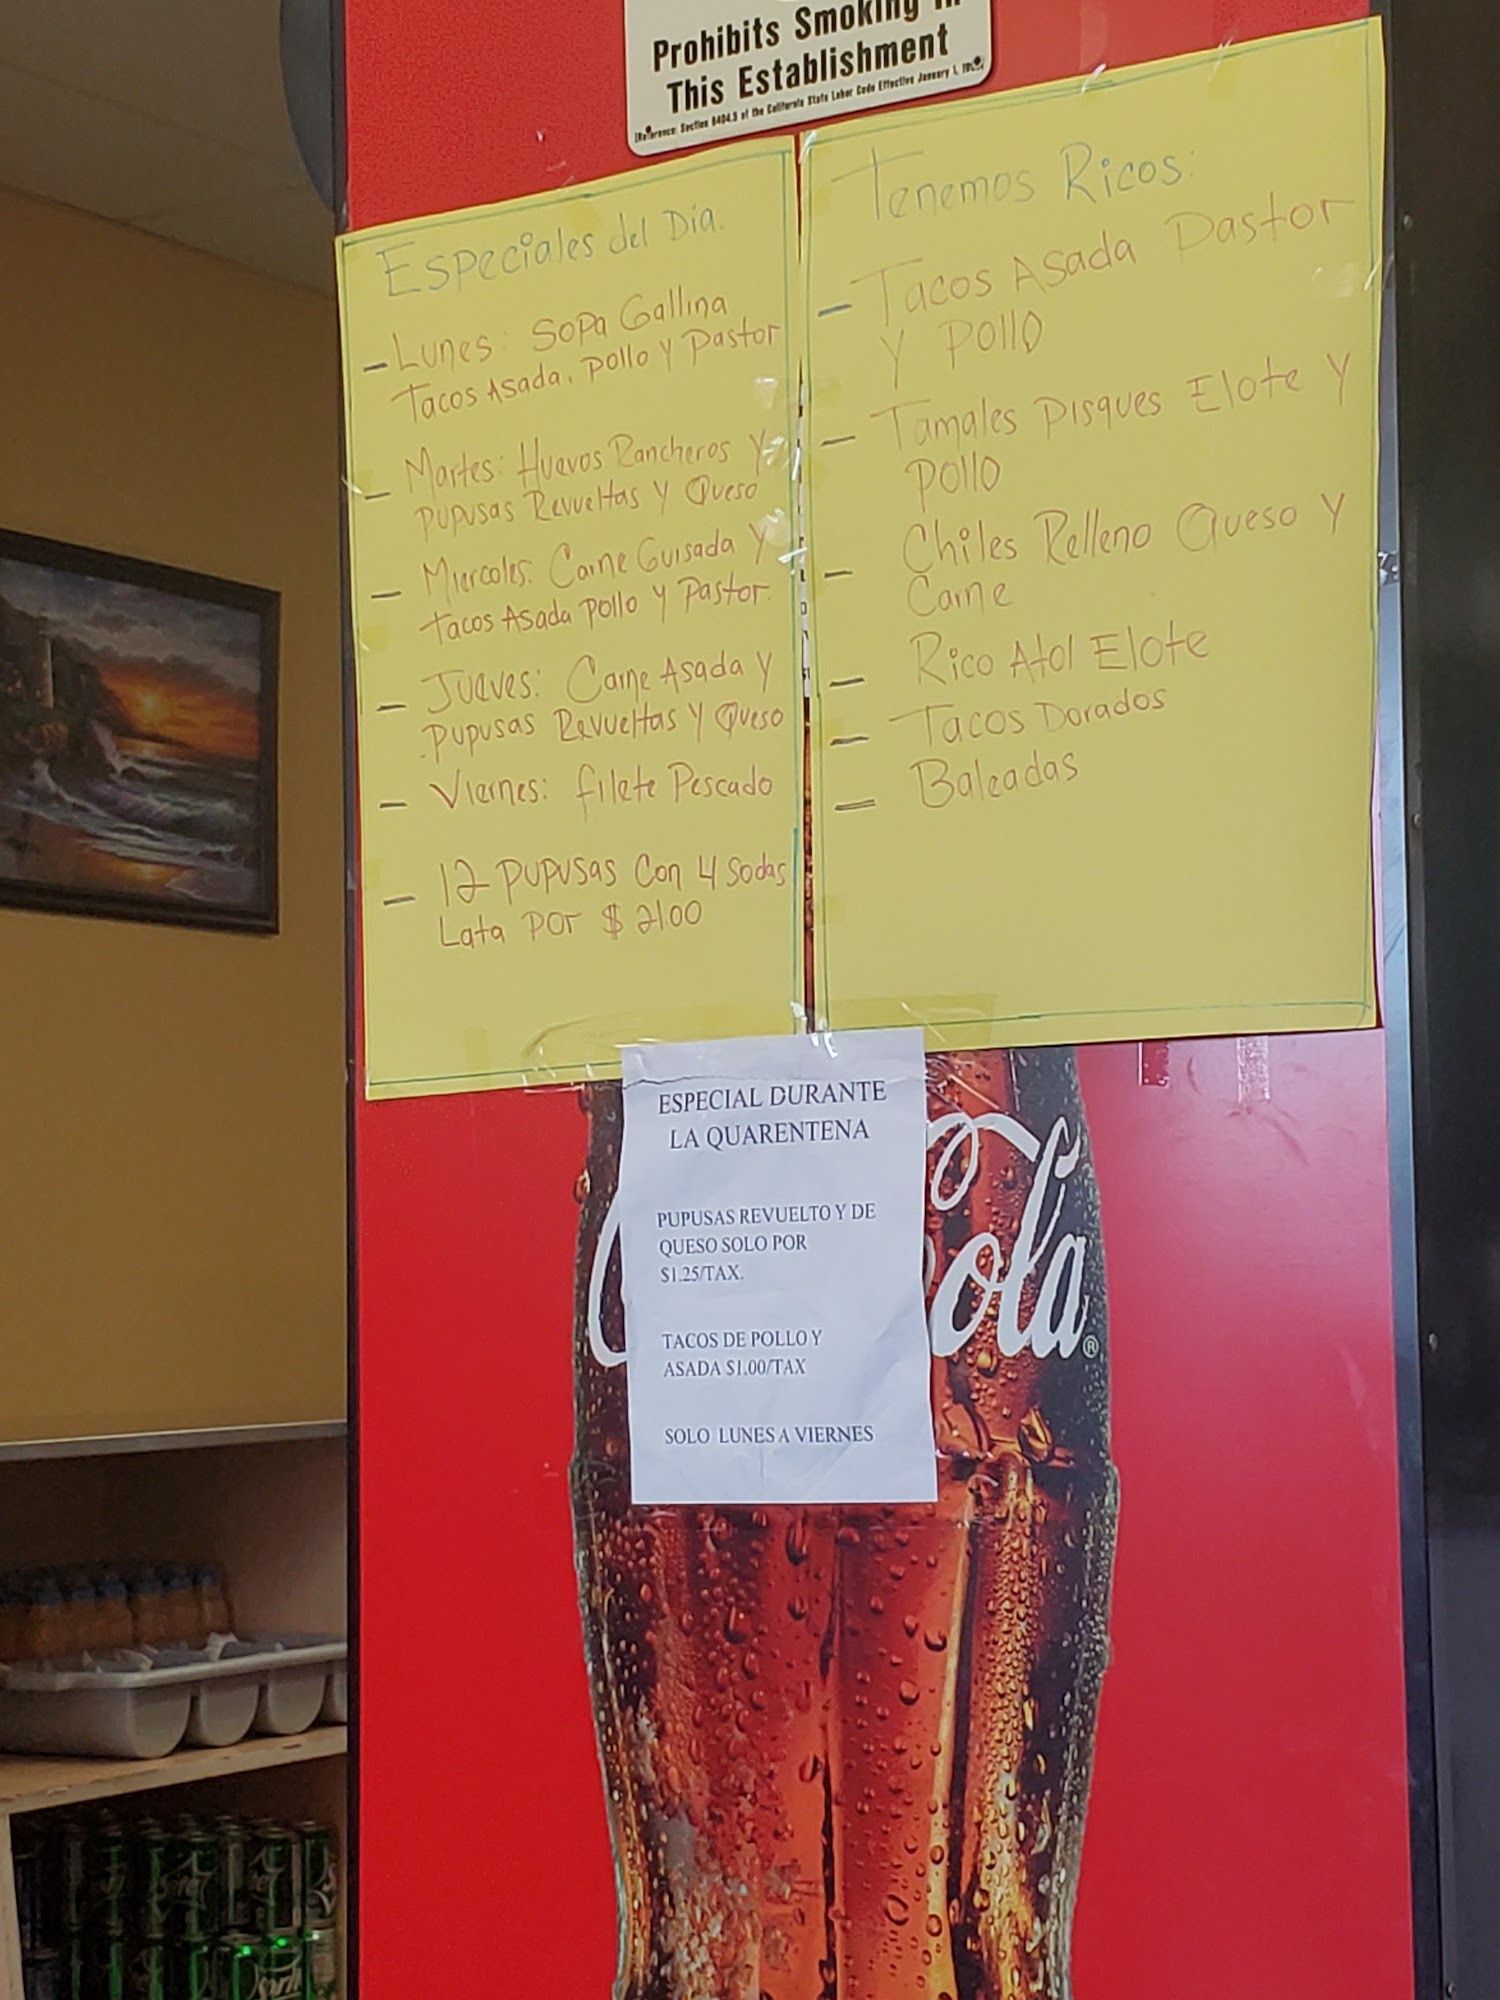 Prohibits Smoking in
This Establishment
(Reference: Section 6404.5 of the California State Labor Code Effective January 1,
Especiales del Día.
- Lunes: Sopa Gallina
Tacos Asada, Pollo y Pastor
- Martes: Huevos Rancheros Y
Pupusas Revueltas y Queso
- Miercoles: Carne Guisada Y
Tacos Asada Pollo y Pastor.
- Jueves: Carne Asada Y
Pupusas Revueltas y Queso
- Viernes: filete Pescado
- 12 Pupusas Con 4 Sodas
Lata por $ 21.00
Tenemos Ricos:
- Tacos Asada Pastor
Y Pollo
- Tamales Pisques Elote Y
Pollo
- Chiles Relleno Queso Y
Carne
- Rico Atol Elote
- Tacos Dorados
- Baleadas
ESPECIAL DURANTE
LA QUARENTENA
PUPUSAS REVUELTO Y DE
QUESO SOLO POR
$1.25/TAX.
TACOS DE POLLO Y
ASADA $1.00/TAX
SOLO LUNES A VIERNES
Cola